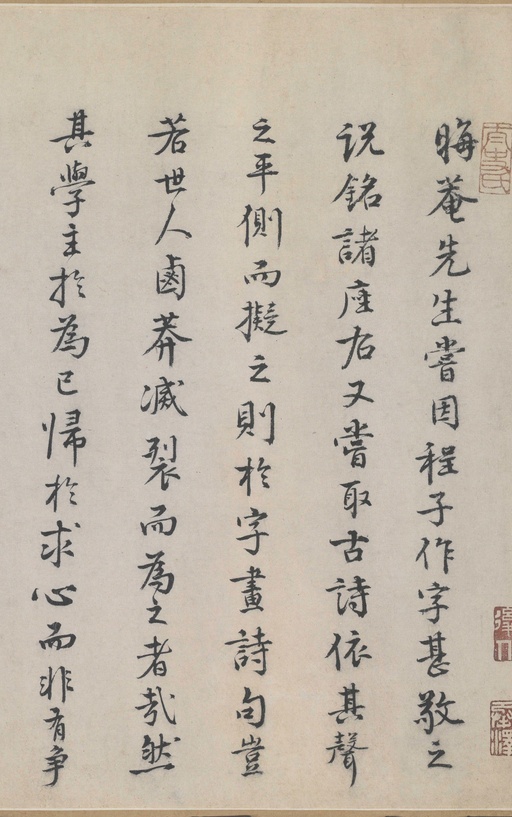 晦菴先生嘗因程子作字甚敬之
説銘諸座右又嘗取古詩依其聲
之平側而擬之則於字畫詩句豈
若世人鹵莽滅裂而為之者哉然
其學主於為己歸於求心而非有争